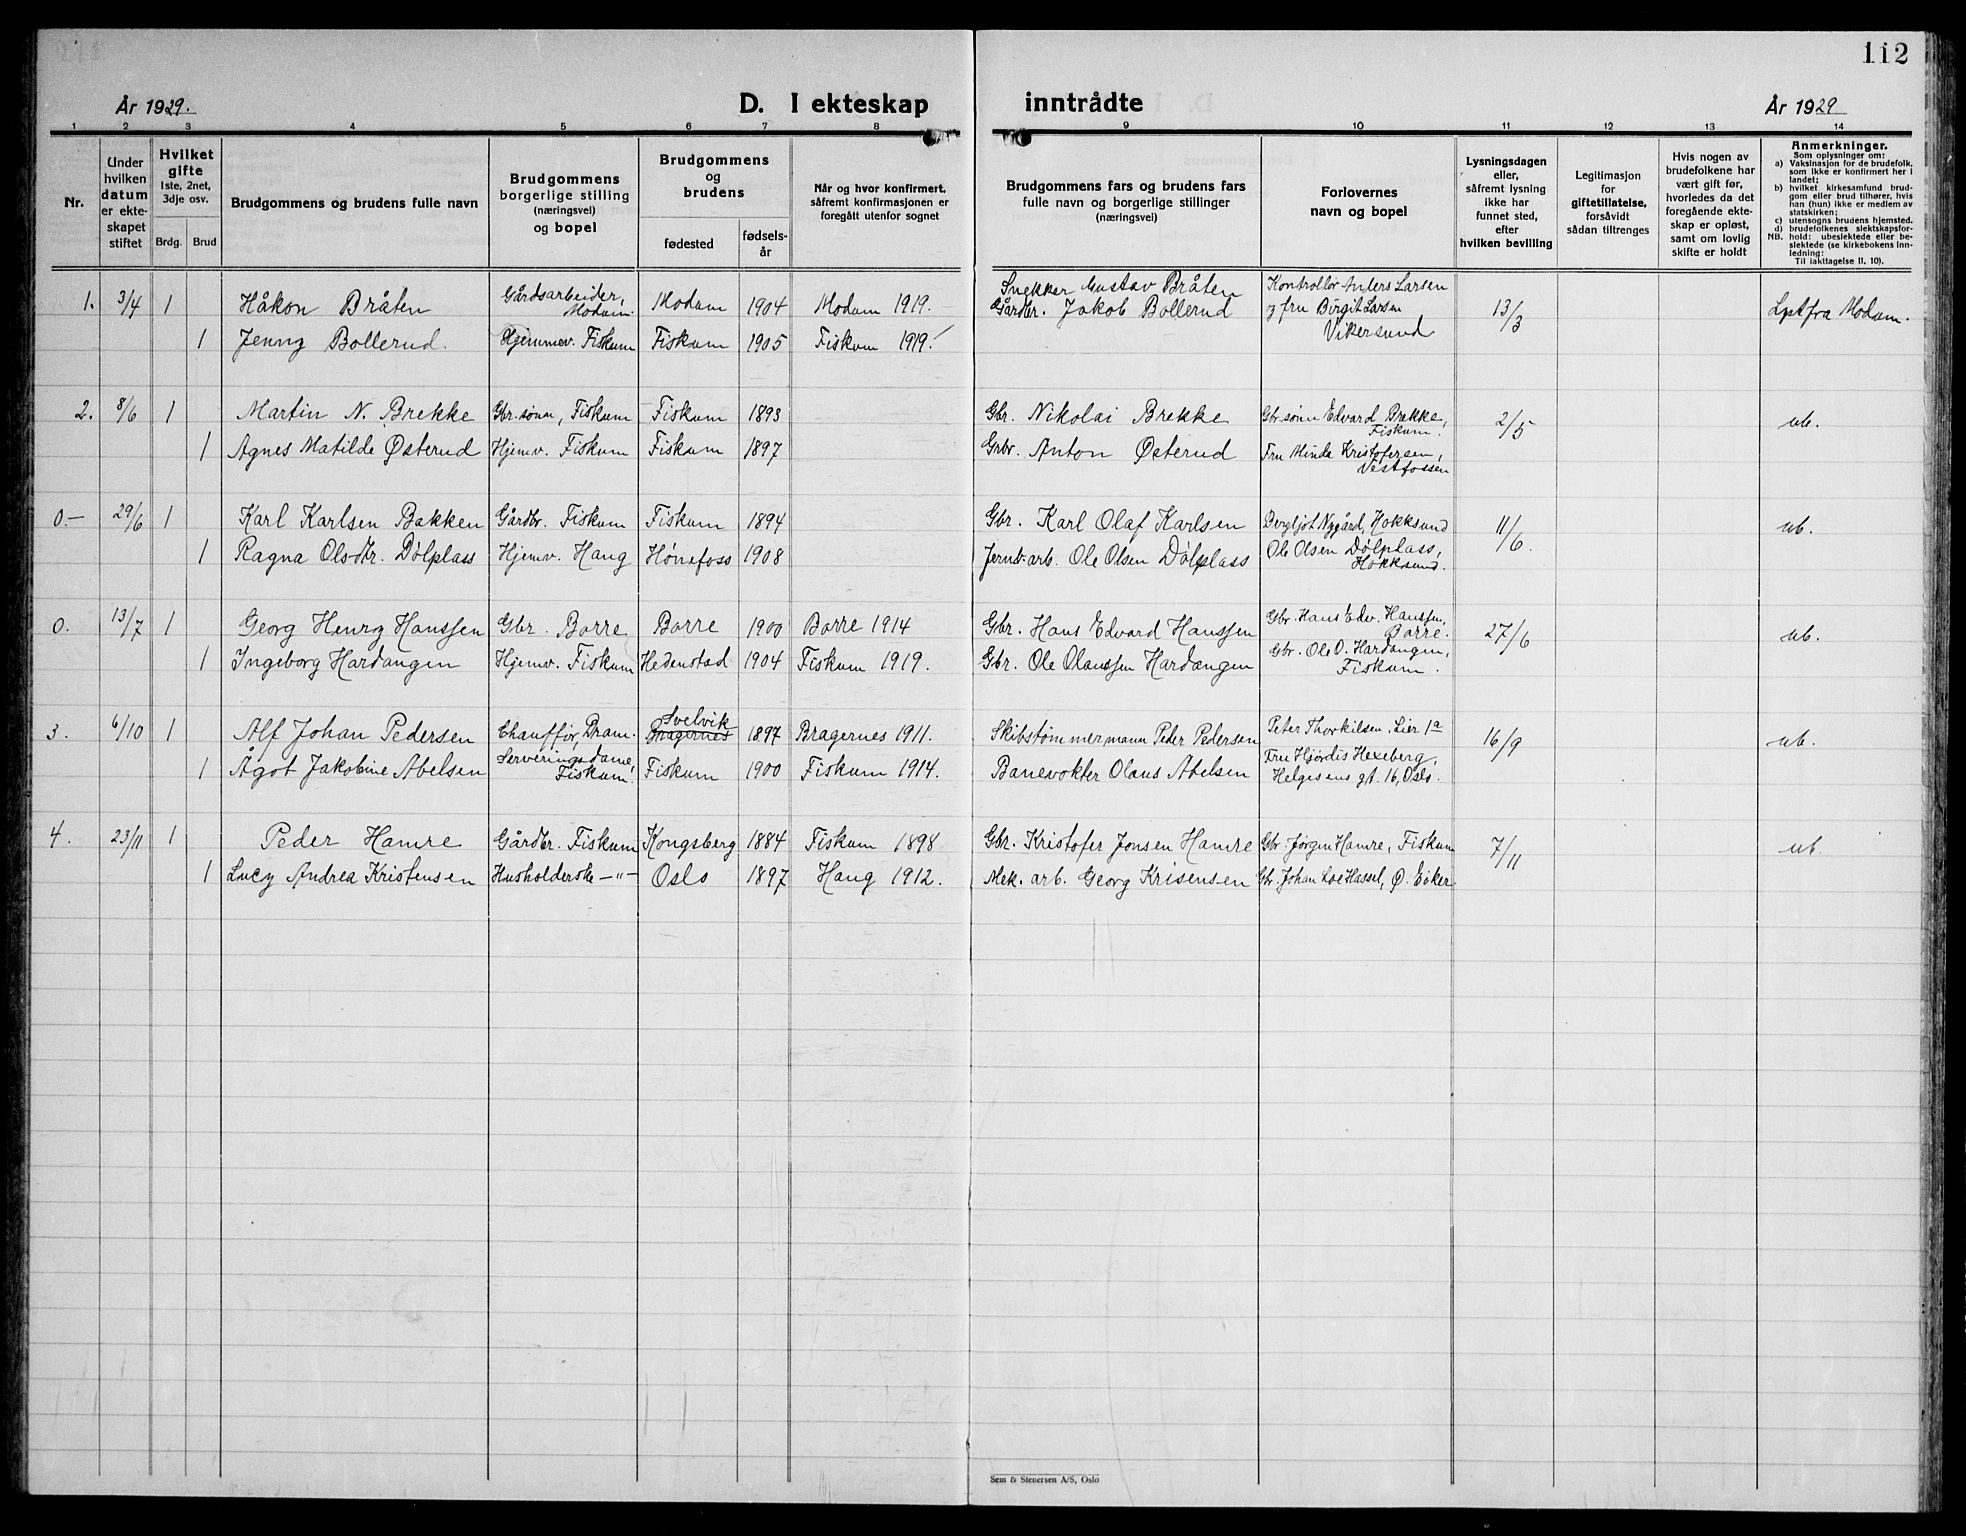 112
År 1929.
D. I ekteskap inntrådte
År 1929
1 2 3 4 5 6 7 8 9 10 11 12 13 14
Nr.
Under hvilken datum er ekteskapet stiftet
Hvilket gifte 1ste, 2net, 3dje osv.
Brdg. Brud
Brudgommens og brudens fulle navn
Brudgommens borgerlige stilling (næringsvei) og bopel
Brudgommens og brudens
fødested
fødselsår
Når og hvor konfirmert, såfremt konfirmasjonen er foregått utenfor sognet
Brudgommens fars og brudens fars fulle navn og borgerlige stillinger (næringsvei)
Forlovernes navn og bopel
Lysningsdagen eller, såfremt lysning ikke har funnet sted, efter hvilken bevilling
Legitimasjon for giftetillatelse, forsåvidt sådan tiltrenges
Hvis nogen av brudefolkene har vært gift før, hvorledes da det foregående ekteskap er opløst, samt om lovlig skifte er holdt
Anmerkninger.
Som oplysninger om:
a) Vaksinasjon for de brudefolk, som ikke er konfirmert her i landet;
b) hvilket kirkesamfund brudgom eller brud tilhører, hvis han (hun) ikke er medlem av statskirken;
c) utensogns brudens hjemsted.
d) brudefolkenes slektskapsforhold: ubeslektede eller beslektede (se kirkebokens innledning:
NB.
Til iakttagelse II, 10).
1. 3/4 1 Håkon Bråten Gårdsarbeider, Modum. Modum 1904 Modum 1919. Snekker Gustav Bråten Kontrollør Anders Larsen 13/3 Lyst fra Modum.
1 Jenny Bollerud. Hjemmev. Fiskum Fiskum 1905 Fiskum 1919. Gårdbr. Jakob Bollerud og fru Birgit Larsen Vikersund
2. 8/6 1 Martin N. Brekke Gbr.sønn, Fiskum Fiskum 1893 Gbr. Nikolai Brekke Gbr.sønn Edvard Brekke, Fiskum. 2/5 ub.
1 Agnes Matilde Østerud Hjemv. Fiskum Fiskum 1897 Grbr. Anton Østerud Fru Minda Kristofersen, Vestfossen
0.- 29/6 1 Karl Karlsen Bakken Gårdbr. Fiskum Fiskum 1894 Gbr. Karl Olaf Karlsen Bergljot Nygård, Hokksund 11/6. ub.
1 Ragna Olsdtr. Dølplass Hjemv. Haug Hønefoss 1908 Jernb. arb. Ole Olsen Dølplass Ole Olsen Dølplass, Hokksund.
0. 13/7 1 Georg Henry Hanssen Gbr. Borre Borre 1900 Borre 1914 Gbr. Hans Edvard Hanssen Gbr. Hans Edv. Hanssen, Borre. 27/6 ub.
1 Ingeborg Hardangen Hjemv. Fiskum Hedenstad 1904 Fiskum 1919. Gbr. Ole Olaussen Hardangen Gbr. Ole O. Hardangen, Fiskum.
3. 6/10 1 Alf Johan Pedersen Chauffør, Dram. Svelvik Bragernes 1897 Bragernes 1911. Skibstømmermann Peder Pedersen Peter Thorkilsen, Lier 1a 16/9 ub.
1 Ågot Jakobine Abelsen Serveringsdame, Fiskum. Fiskum 1900 Fiskum 1914. Banevokter Olaus Abelsen Fru Hjørdis Hexeberg, Helgesens gt. 16, Oslo.
4. 23/11 1 Peder Hamre Gårdbr. Fiskum Kongsberg 1884 Fiskum 1898 Gbr. Kristofer Jonsen Hamre Gbr. Jørgen Hamre, Fiskum 7/11 ub.
1 Lucy Andrea Kristensen Husholderske -"- Oslo 1897 Haug 1912. Mek. arb. Georg Krisensen Gbr. Johan Loe Hassel, Ø. Eiker
Sem & Stenersen A/S, Oslo